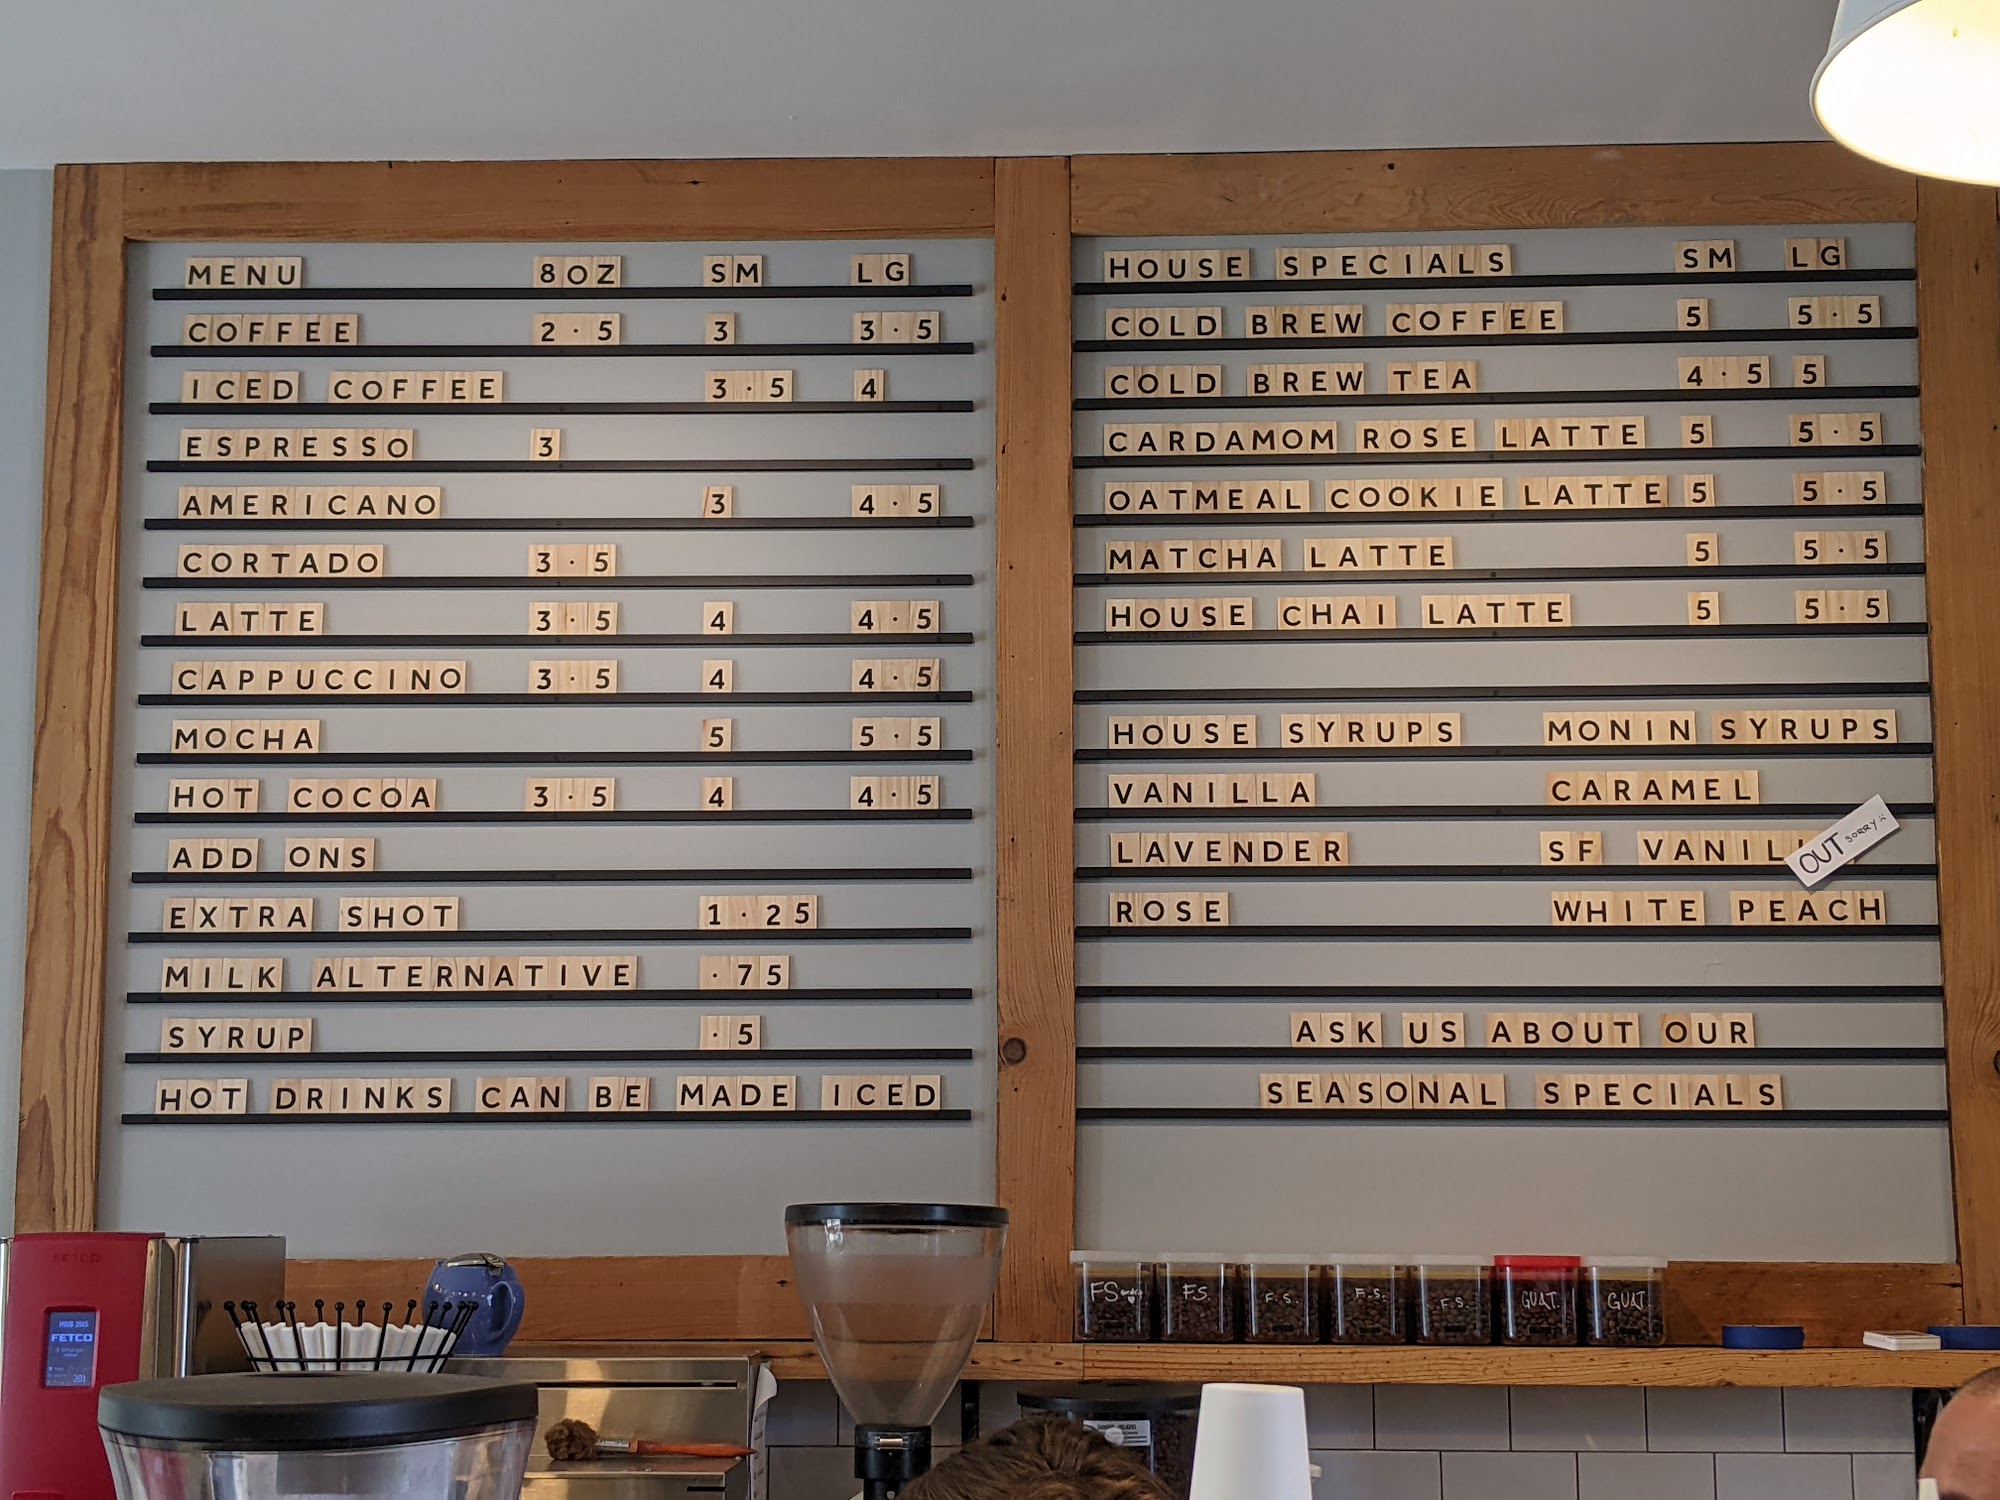 MENU 8OZ SM LG
COFFEE 2·5 3 3·5
ICED COFFEE 3·5 4
ESPRESSO 3
AMERICANO 3 4·5
CORTADO 3·5
LATTE 3·5 4 4·5
CAPPUCCINO 3·5 4 4·5
MOCHA 5 5·5
HOT COCOA 3·5 4 4·5
ADD ONS
EXTRA SHOT 1·25
MILK ALTERNATIVE ·75
SYRUP ·5
HOT DRINKS CAN BE MADE ICED
HOUSE SPECIALS SM LG
COLD BREW COFFEE 5 5·5
COLD BREW TEA 4·5 5
CARDAMOM ROSE LATTE 5 5·5
OATMEAL COOKIE LATTE 5 5·5
MATCHA LATTE 5 5·5
HOUSE CHAI LATTE 5 5·5
HOUSE SYRUPS MONIN SYRUPS
VANILLA CARAMEL
LAVENDER SF VANIL
OUT SORRY
ROSE WHITE PEACH
ASK US ABOUT OUR
SEASONAL SPECIALS
FS F.S. F.S. F.S. F.S. GUAT. GUAT
FETCO
FETCO